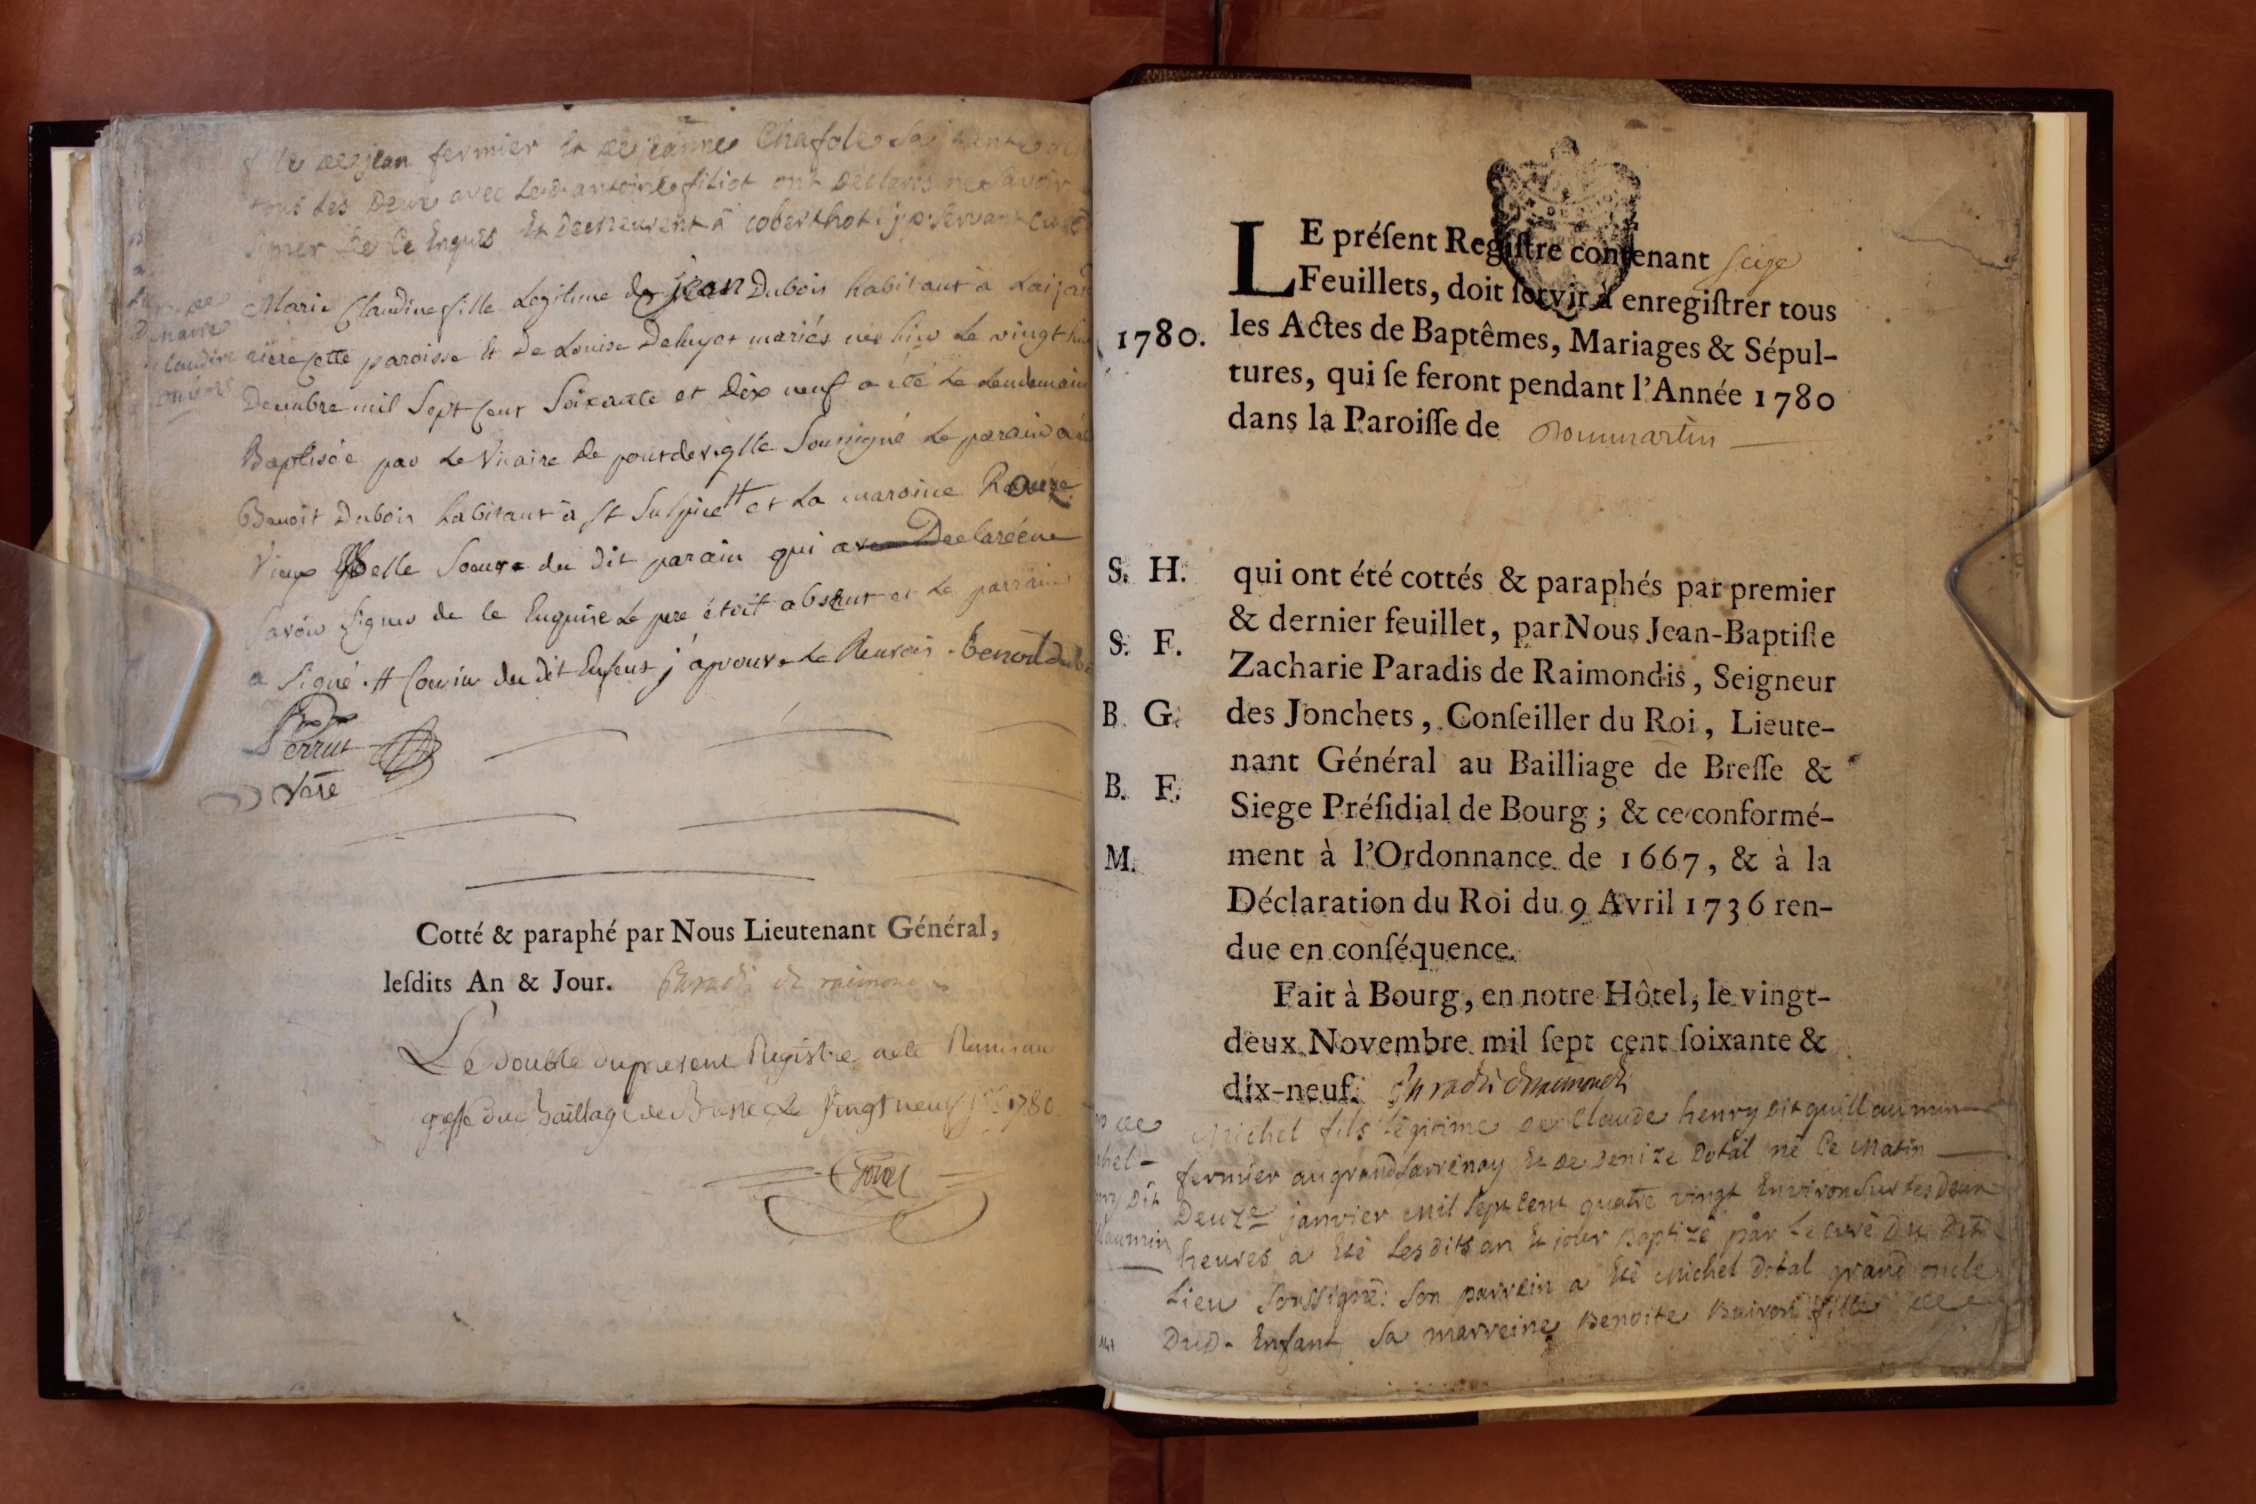 de jean fermier et de jeanne Chafole sa
tous les deux avec led. antoine filiot ont declarés ne savoir
signer de ce Enquis Et demeurent à coberthot
Marie Claudine fille Legitime de jean Dubois habitant à
cette paroisse Et De Louise Deluyer mariés née hier Le vingt
Decembre mil Sept Cent Soixante et Dix neuf a été Le Lendemain
Baptisée par Le Vicaire de Soussigné Le parain a
Benoit Dubois habitant à St Sulpice # et La maraine
Vieux Belle Soeur du dit parain qui a Declaréene
Savoir signer de ce Enquise Le pere étoit absent et Le parrain
a Signé # Cousin du dit Enfent j'aprouve Le Renvois Benoit
Perrut
Vare
Cotté & paraphé par Nous Lieutenant Général,
leſdits An & Jour. Paradis de raimondis
Le double du present Registre a été Remis au
greffe du Baillage de Bresse Le Vingt neuf 1780
LE préſent Regiſtre contenant seize
Feuillets, doit ſervir à enregiſtrer tous
1780. les Actes de Baptêmes, Mariages & Sépul-
tures, qui ſe feront pendant l'Année 1780
dans la Paroiſſe de Dommartin
S. H. qui ont été cottés & paraphés par premier
& dernier feuillet, par Nous Jean-Baptiſte
S. F. Zacharie Paradis de Raimondis, Seigneur
B. G. des Jonchets, Conſeiller du Roi, Lieute-
nant Général au Bailliage de Breſſe &
B. F. Siege Préſidial de Bourg ; & ce conformé-
M. ment à l'Ordonnance de 1667, & à la
Déclaration du Roi du 9 Avril 1736 ren-
due en conſéquence.
Fait à Bourg, en notre Hôtel, le vingt-
deux Novembre mil ſept cent ſoixante &
dix-neuf. Paradis de raimondis
Michel fils légitime de Claude henry dit guillaumin
fermier au grand Larrenay Et de Denize Dotal né Ce Matin
Deuze janvier Mil Sept Cent quatre vingt Environ Sur les Deux
heures a Eté Lesdits an Et jour Baptizé par Le curé Du Dit
Lieu Soussigné: Son parrein a Eté Michel Dotal grand oncle
Dud. Enfant Sa marreine Benoite Buiron fille de